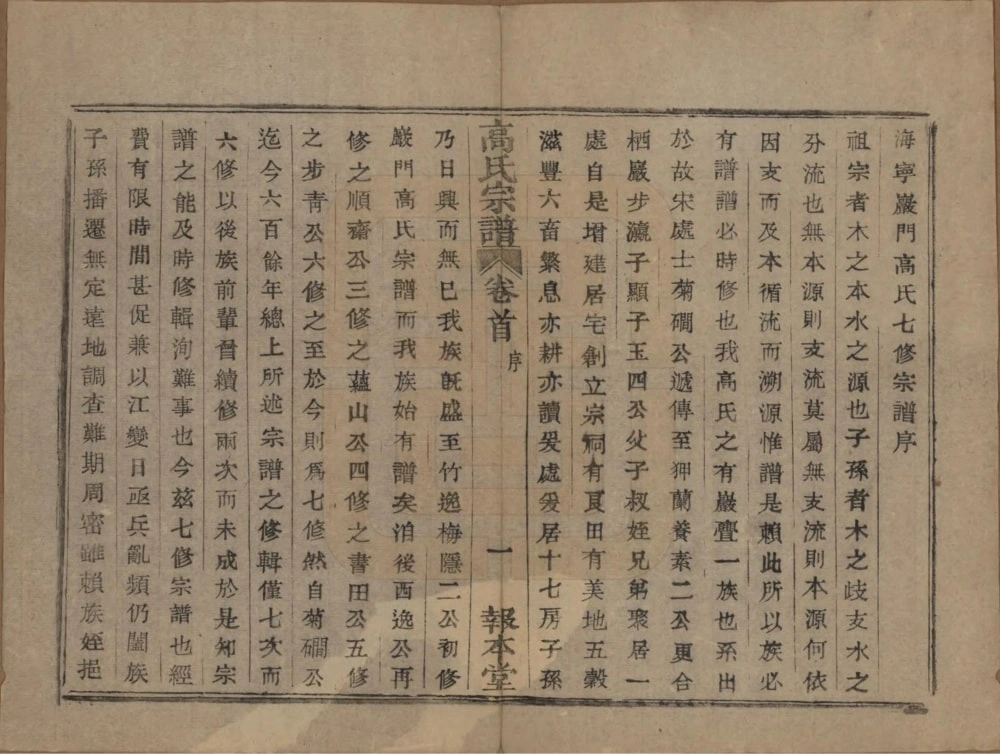 海寧巖門高氏七修宗譜序
祖宗者木之本水之源也子孫者木之歧支水之
分流也無本源則支流莫屬無支流則本源何依
因支而及本循流而溯源惟譜是賴此所以族必
有譜譜必時修也我高氏之有巖亹一族也系出
於故宋處士菊磵公遞傳至狎蘭養素二公更合
栖巖步瀛子顯子玉四公父子叔姪兄弟聚居一
處自是增建居宅創立宗祠有良田有美地五穀
滋豐六畜繁息亦耕亦讀爰處爰居十七房子孫
高氏宗譜 卷首 序 一 報本堂
乃日興而無已我族既盛至竹逸梅隱二公初修
巖門高氏宗譜而我族始有譜矣洎後西逸公再
修之順齋公三修之蘊山公四修之書田公五修
之步青公六修之至於今則爲七修然自菊磵公
迄今六百餘年總上所述宗譜之修輯僅七次而
六修以後族前輩嘗續修兩次而未成於是知宗
譜之能及時修輯洵難事也今茲七修宗譜也經
費有限時間甚促兼以江變日亟兵亂頻仍闔族
子孫播遷無定遠地調查難期周密雖賴族姪挹